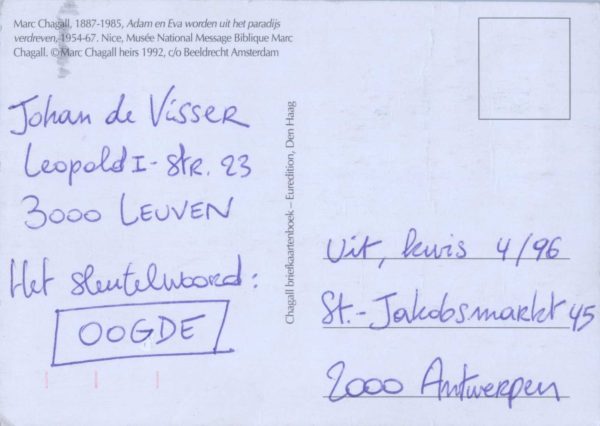 Marc Chagall, 1887-1985, Adam en Eva worden uit het paradijs
verdreven, 1954-67. Nice, Musée National Message Biblique Marc
Chagall. ©Marc Chagall heirs 1992, c/o Beeldrecht Amsterdam
Johan de Visser
Leopold I-Str. 23
3000 LEUVEN
Het sleutelwoord:
OOGDE
Chagall briefkaartenboek – Euredition, Den Haag
Uit, kwis 4/96
St.-Jakobsmarkt 45
2000 Antwerpen